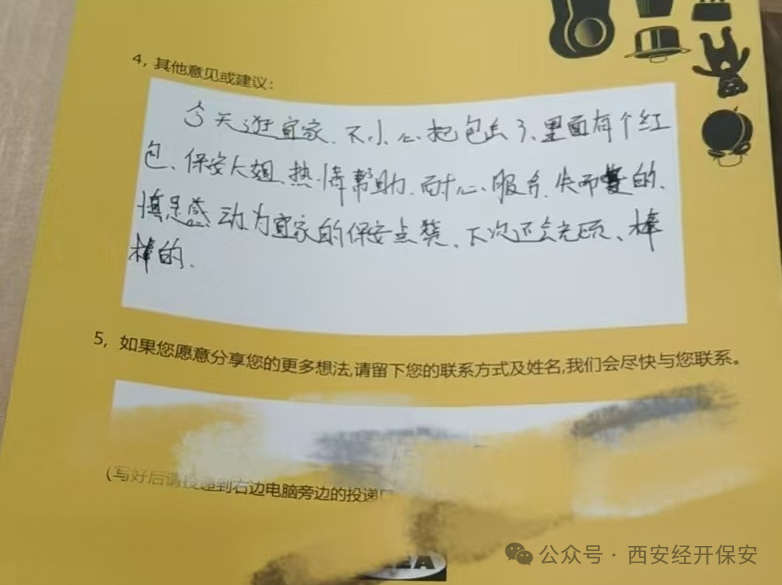 4, 其他意见或建议:
今天逛宜家、不小心把包丢了、里面有个红
包、保安大姐、热情帮助、耐心、服务、失而复的、
真是感动为宜家的保安点赞、下次还会光顾、棒
棒的.
5, 如果您愿意分享您的更多想法,请留下您的联系方式及姓名,我们会尽快与您联系。
(写好后请投递到右边电脑旁边的投递
公众号·西安经开保安